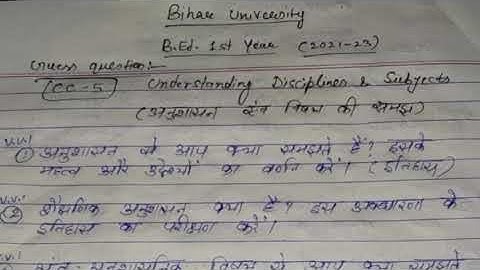 Bihar University
B.Ed. 1st Year (2021-23)
Guess question:-
(CC-5) Understanding Disciplines & Subjects
(अनुशासन एंव विषय की समझ)
V.V.I
① अनुशासन से आप क्या समझते हैं? इसके
महत्व और उद्देश्यों का वर्णन करें। (इतिहास)
V.V.I
② शैक्षणिक अनुशासन क्या है? इस अवधारणा के
इतिहास का परीक्षण करें।
अंत: अनुशासनिक विषय से आप क्या समझते